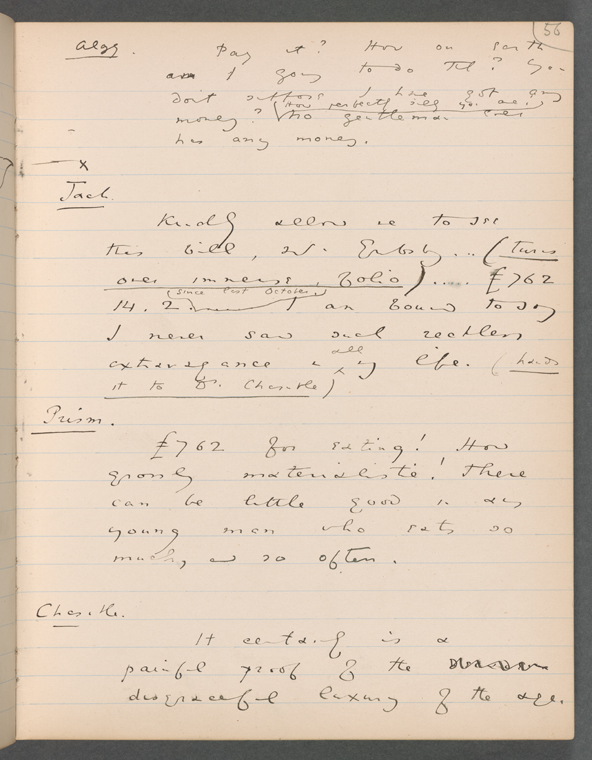 56
Algy. Pay it? How on earth
am I going to do that? You
don't suppose I have got any
(How perfectly silly you are.)
money? No gentleman ever
has any money.
x
Jack.
Kindly allow me to see
this bill, Mr. Gribsby... (turns
over immense folio) .... £762
(since last October)
14. 2. I am bound to say
I never saw such reckless
all
extravagance in my life. (hands
it to Dr. Chasuble)
Prism.
£762 for eating! How
grossly materialistic! There
can be little good in any
young man who eats so
much, and so often.
Chasuble.
It certainly is a
painful proof of the
disgraceful luxury of the age.